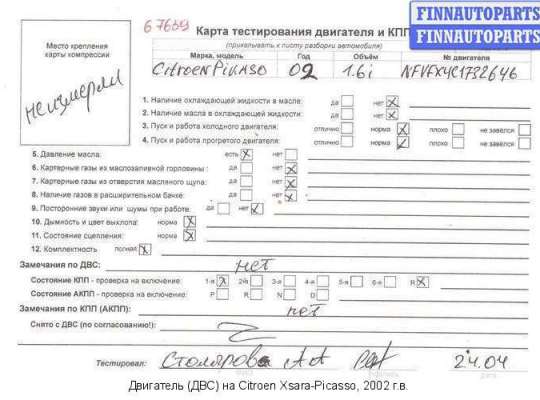 67659
Карта тестирования двигателя и КПП
FINNAUTOPARTS
FINNAUTOPARTS
(прикалывать к листу разборки автомобиля)
Место крепления карты компрессии
неизмеряли
Марка, модель Год Объём № двигателя
CITROEN PICASO 02 1.6i
1. Наличие охлаждающей жидкости в масле: да нет X
2. Наличие масла в охлаждающей жидкости: да нет X
3. Пуск и работа холодного двигателя: отлично норма X плохо не завелся
4. Пуск и работа прогретого двигателя: отлично норма X плохо не завелся
5. Давление масла: есть X нет
6. Картерные газы из маслозаливной горловины: да нет X
7. Картерные газы из отверстия масляного щупа: да нет X
8. Наличие газов в расширительном бачке: да нет X
9. Посторонние звуки или шумы при работе: да нет X
10. Дымность и цвет выхлопа: норма X
11. Состояние сцепления: норма X
12. Комплектность полная X
Замечания по ДВС: нет
Состояние КПП - проверка на включение: 1-я X 2-я 3-я 4-я 5-я 6-я R X
Состояние АКПП - проверка на включение: P R N D
Замечания по КПП (АКПП): нет
Снято с ДВС (по согласованию!):
Тестировал: Столяров 24.04
Двигатель (ДВС) на Citroen Xsara-Picasso, 2002 г.в.